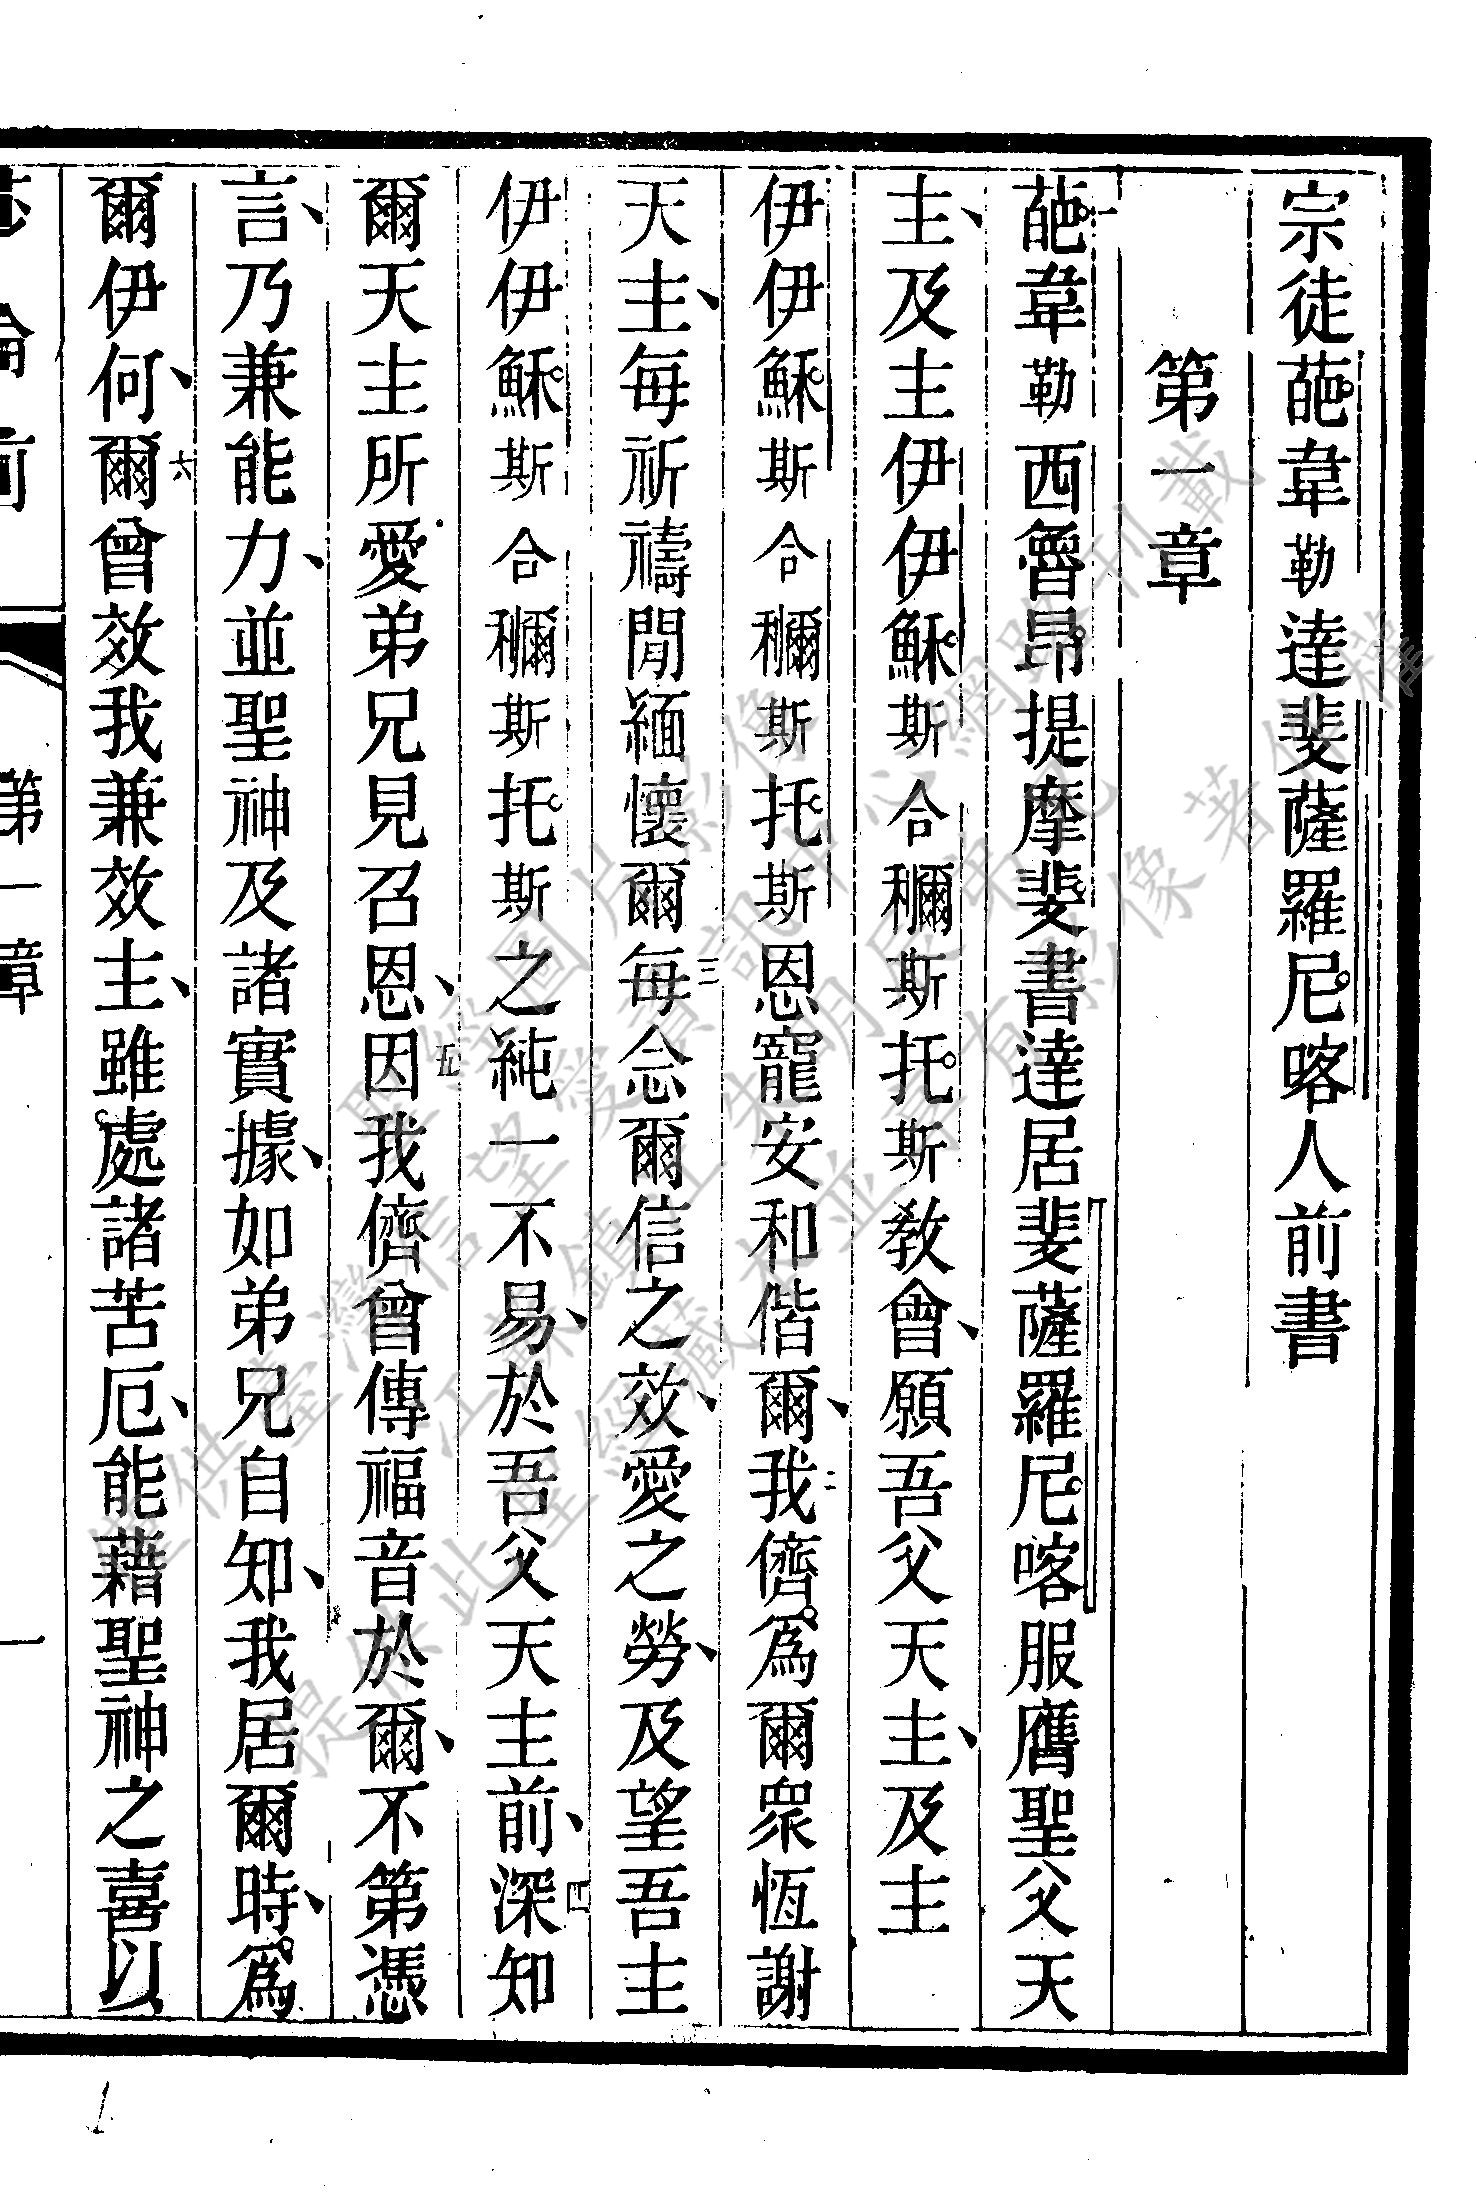 宗徒葩韋勒達斐薩羅尼喀人前書
第一章
一葩韋勒西魯昂提摩斐書達居斐薩羅尼喀服膺聖父天
主、及主伊伊穌斯合穪斯托斯敎會、願吾父天主、及主
伊伊穌斯合穪斯托斯恩寵安和偕爾、二我儕爲爾眾恆謝
天主、每祈禱閒緬懷爾三每念爾信之效、愛之勞、及望吾主
伊伊穌斯合穪斯托斯之純一不易、於吾父天主前、四深知
爾天主所愛弟兄見召恩、五因我儕曾傳福音於爾、不第憑
言、乃兼能力、並聖神及諸實據、如弟兄自知、我居爾時、爲
爾伊何、六爾曾效我兼效主、雖處諸苦厄、能藉聖神之喜以
第一章
一